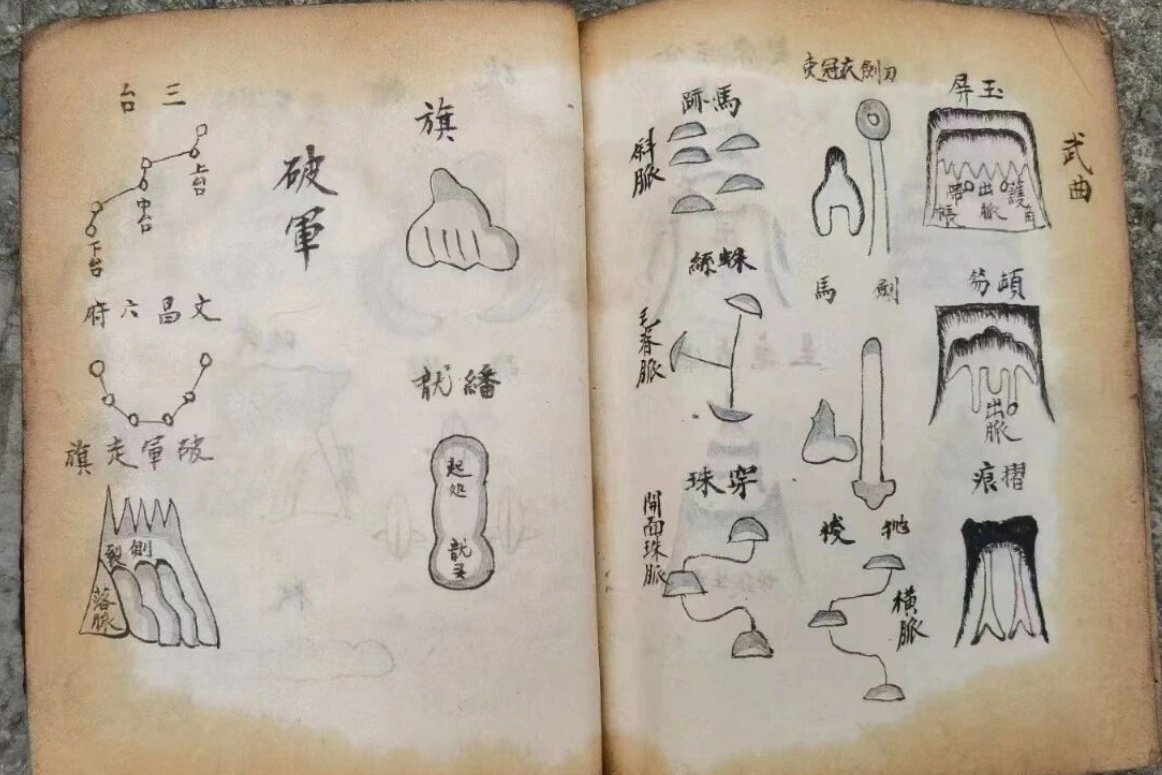 武曲
玉屏
帶帳
出脈
護
頓笏
出脈
摺痕
衣冠吏
劍刀
劍
馬
拋梭
橫脈
馬跡
斜脈
蛛絲
毛脊脈
穿珠
開面珠脈
旗
旛龍
起処
龍
破軍
三台
上台
中台
下台
文昌六府
破軍走旗
劍裂
落脈